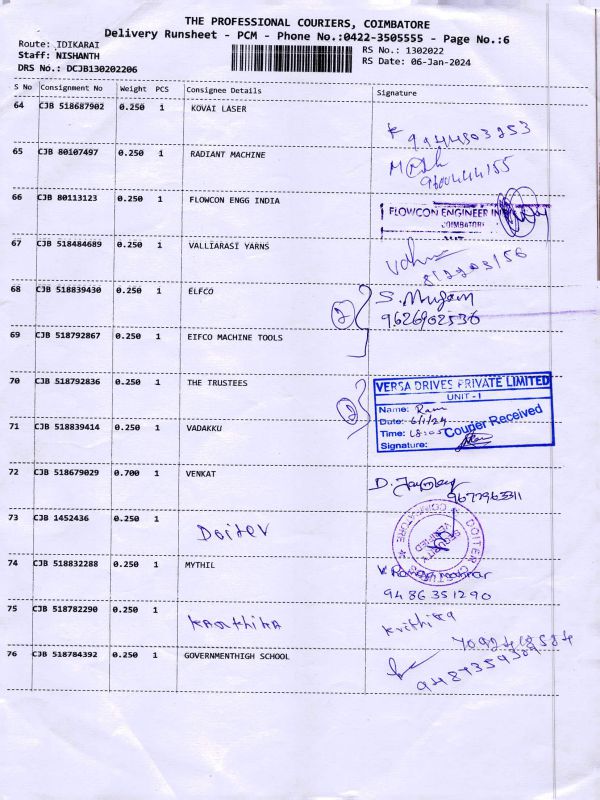 THE PROFESSIONAL COURIERS, COIMBATORE
Delivery Runsheet - PCM - Phone No.:0422-3505555 - Page No.:6
Route: IDIKARAI
RS No.: 1302022
Staff: NISHANTH
RS Date: 06-Jan-2024
DRS No.: DCJB130202206
S No Consignment No Weight PCS Consignee Details Signature
64 CJB 518687902 0.250 1 KOVAI LASER
65 CJB 80107497 0.250 1 RADIANT MACHINE
9600444155
66 CJB 80113123 0.250 1 FLOWCON ENGG INDIA
FLOWCON ENGINEER IN
COIMBATORE
67 CJB 518484689 0.250 1 VALLIARASI YARNS
68 CJB 518839430 0.250 1 ELFCO
2
9626902536
69 CJB 518792867 0.250 1 EIFCO MACHINE TOOLS
70 CJB 518792836 0.250 1 THE TRUSTEES
2
VERSA DRIVES PRIVATE LIMITED
UNIT - 1
Name: Ram
Date: 6/1/24
Time: 18:05
Courier Received
Signature:
71 CJB 518839414 0.250 1 VADAKKU
72 CJB 518679029 0.700 1 VENKAT
9677963311
73 CJB 1452436 0.250 1 Doiter
SECURITY VERIFIED
74 CJB 518832288 0.250 1 MYTHIL
9486351290
75 CJB 518782290 0.250 1 Karthika
Krithika
76 CJB 518784392 0.250 1 GOVERNMENTHIGH SCHOOL
9487359309